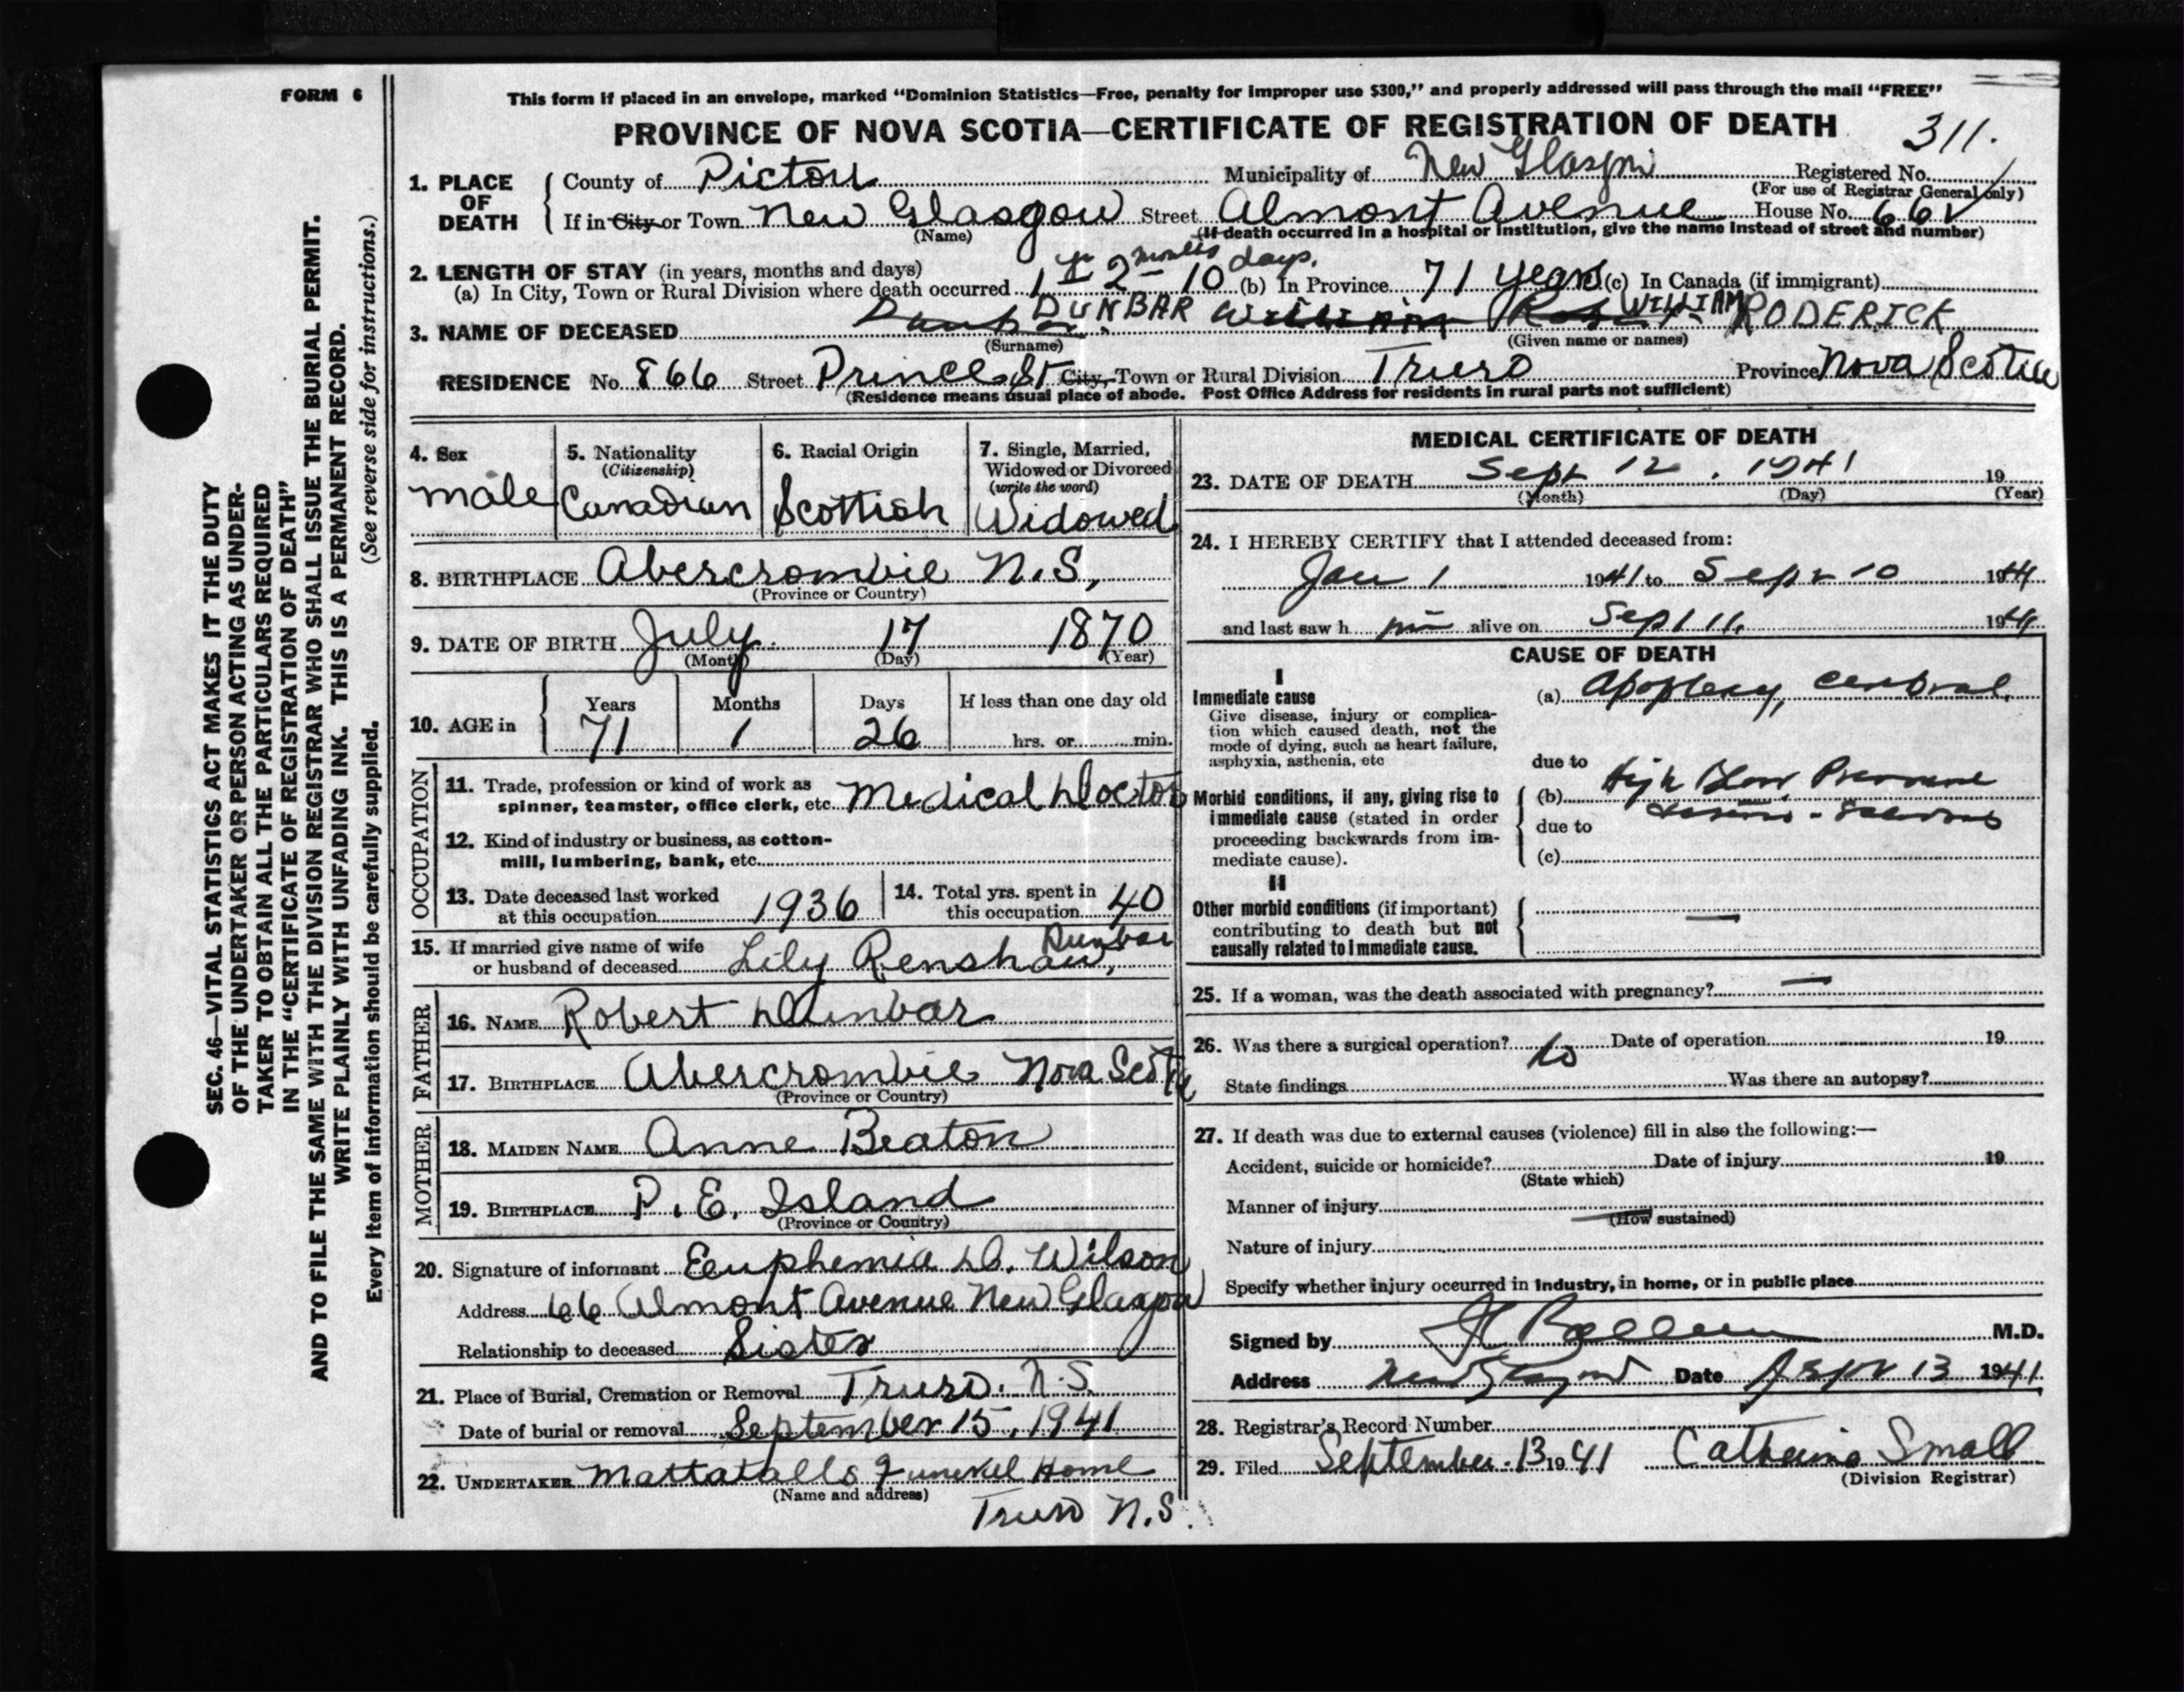 FORM 6
This form if placed in an envelope, marked “Dominion Statistics—Free, penalty for improper use $300,” and properly addressed will pass through the mail “FREE”
PROVINCE OF NOVA SCOTIA—CERTIFICATE OF REGISTRATION OF DEATH
311.
1. PLACE OF DEATH
County of Pictou Municipality of New Glasgow Registered No.
(For use of Registrar General only)
If in City or Town New Glasgow Street Almont Avenue House No. 66
(Name) (If death occurred in a hospital or institution, give the name instead of street and number)
2. LENGTH OF STAY (in years, months and days)
(a) In City, Town or Rural Division where death occurred 1 yr 2 months 10 days. (b) In Province 71 years (c) In Canada (if immigrant)
3. NAME OF DECEASED Dunbar DUNBAR William WILLIAM RODERICK
(Surname) (Given name or names)
RESIDENCE No. 866 Street Prince St City, Town or Rural Division Truro Province Nova Scotia
(Residence means usual place of abode. Post Office Address for residents in rural parts not sufficient)
4. Sex
male
5. Nationality
(Citizenship)
Canadian
6. Racial Origin
Scottish
7. Single, Married,
Widowed or Divorced
(write the word)
Widowed
8. BIRTHPLACE Abercrombie N.S,
(Province or Country)
9. DATE OF BIRTH July 17 1870
(Month) (Day) (Year)
10. AGE in
Years Months Days If less than one day old
71 1 26 hrs. or min.
OCCUPATION
11. Trade, profession or kind of work as
spinner, teamster, office clerk, etc. Medical Doctor
12. Kind of industry or business, as cotton-
mill, lumbering, bank, etc.
13. Date deceased last worked
at this occupation 1936
14. Total yrs. spent in
this occupation 40
15. If married give name of wife
or husband of deceased Lily Renshaw, Dunbar
FATHER
16. NAME Robert Dunbar
17. BIRTHPLACE Abercrombie Nova Scotia
(Province or Country)
MOTHER
18. MAIDEN NAME Anne Beaton
19. BIRTHPLACE P. E. Island
(Province or Country)
20. Signature of informant Euphemia D. Wilson
Address 66 Almont Avenue New Glasgow
Relationship to deceased Sister
21. Place of Burial, Cremation or Removal Truro. N.S.
Date of burial or removal September 15, 1941
22. UNDERTAKER Mattatalls Funeral Home
(Name and address)
Truro N.S.
MEDICAL CERTIFICATE OF DEATH
23. DATE OF DEATH Sept 12, 1941 19
(Month) (Day) (Year)
24. I HEREBY CERTIFY that I attended deceased from:
Jan 1 1941 to Sept 10 1941
and last saw h im alive on Sept 11, 1941
CAUSE OF DEATH
I
Immediate cause
Give disease, injury or complica-
tion which caused death, not the
mode of dying, such as heart failure,
asphyxia, asthenia, etc
(a) Apoplexy, cerebral,
due to
Morbid conditions, if any, giving rise to
immediate cause (stated in order
proceeding backwards from im-
mediate cause).
(b) High Blood Pressure
due to
(c)
II
Other morbid conditions (if important)
contributing to death but not
causally related to immediate cause.
—
25. If a woman, was the death associated with pregnancy? —
26. Was there a surgical operation? No Date of operation 19
State findings Was there an autopsy?
27. If death was due to external causes (violence) fill in also the following:—
Accident, suicide or homicide? Date of injury 19
(State which)
Manner of injury
(How sustained)
Nature of injury
Specify whether injury occurred in industry, in home, or in public place
Signed by M.D.
Address New Glasgow Date Sept 13 1941
28. Registrar's Record Number
29. Filed September 13 1941 Catherine Small
(Division Registrar)
SEC. 46—VITAL STATISTICS ACT MAKES IT THE DUTY
OF THE UNDERTAKER OR PERSON ACTING AS UNDER-
TAKER TO OBTAIN ALL THE PARTICULARS REQUIRED
IN THE “CERTIFICATE OF REGISTRATION OF DEATH”
AND TO FILE THE SAME WITH THE DIVISION REGISTRAR WHO SHALL ISSUE THE BURIAL PERMIT.
WRITE PLAINLY WITH UNFADING INK. THIS IS A PERMANENT RECORD.
Every item of information should be carefully supplied. (See reverse side for instructions.)